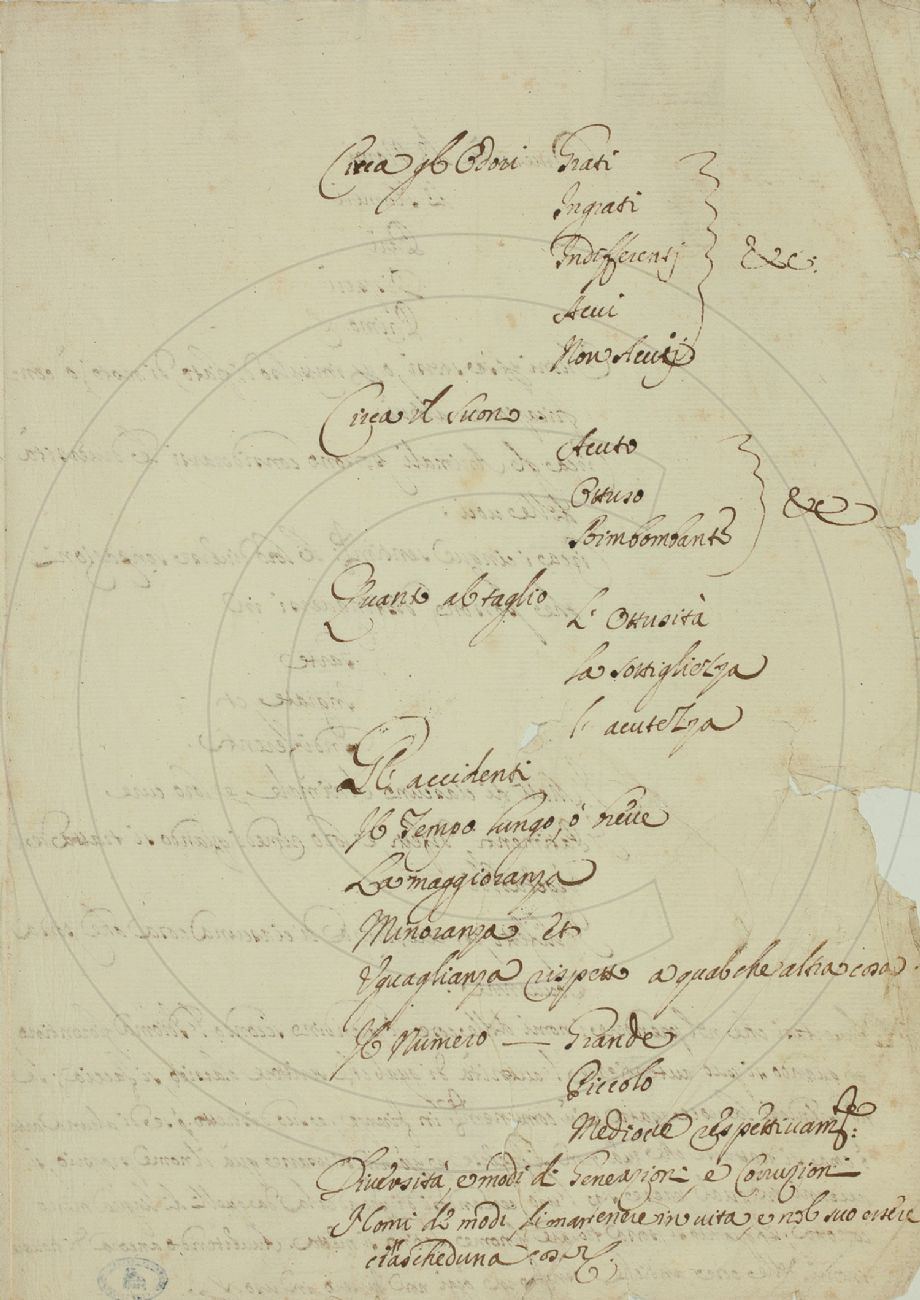 Circa gl'Odori Grati
Ingrati
Indifferentj
Acui
Non Acuij
&c:
Circa il Suono
Acuto
Ottuso
Bimbombante
&c
Quanto al taglio
L'Ottusità
La sottigliezza
l'acutezza
Gl'accidenti
Il Tempo lungo, ó breve
La maggioranza
Minoranza et
Uguaglianza rispetto a qualche altra cosa.
Il Numero — Grande
Piccolo
Mediocre respettivam.te:
Diversità, e modi di Generazioni, e Corruzioni
Nomi de modi di mantenere in vita, e nel suo essere
ciascheduna cosa